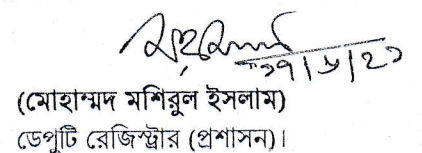 ১৭|৮|২১
(মোহাম্মদ মশিরুল ইসলাম)
ডেপুটি রেজিস্ট্রার (প্রশাসন)।